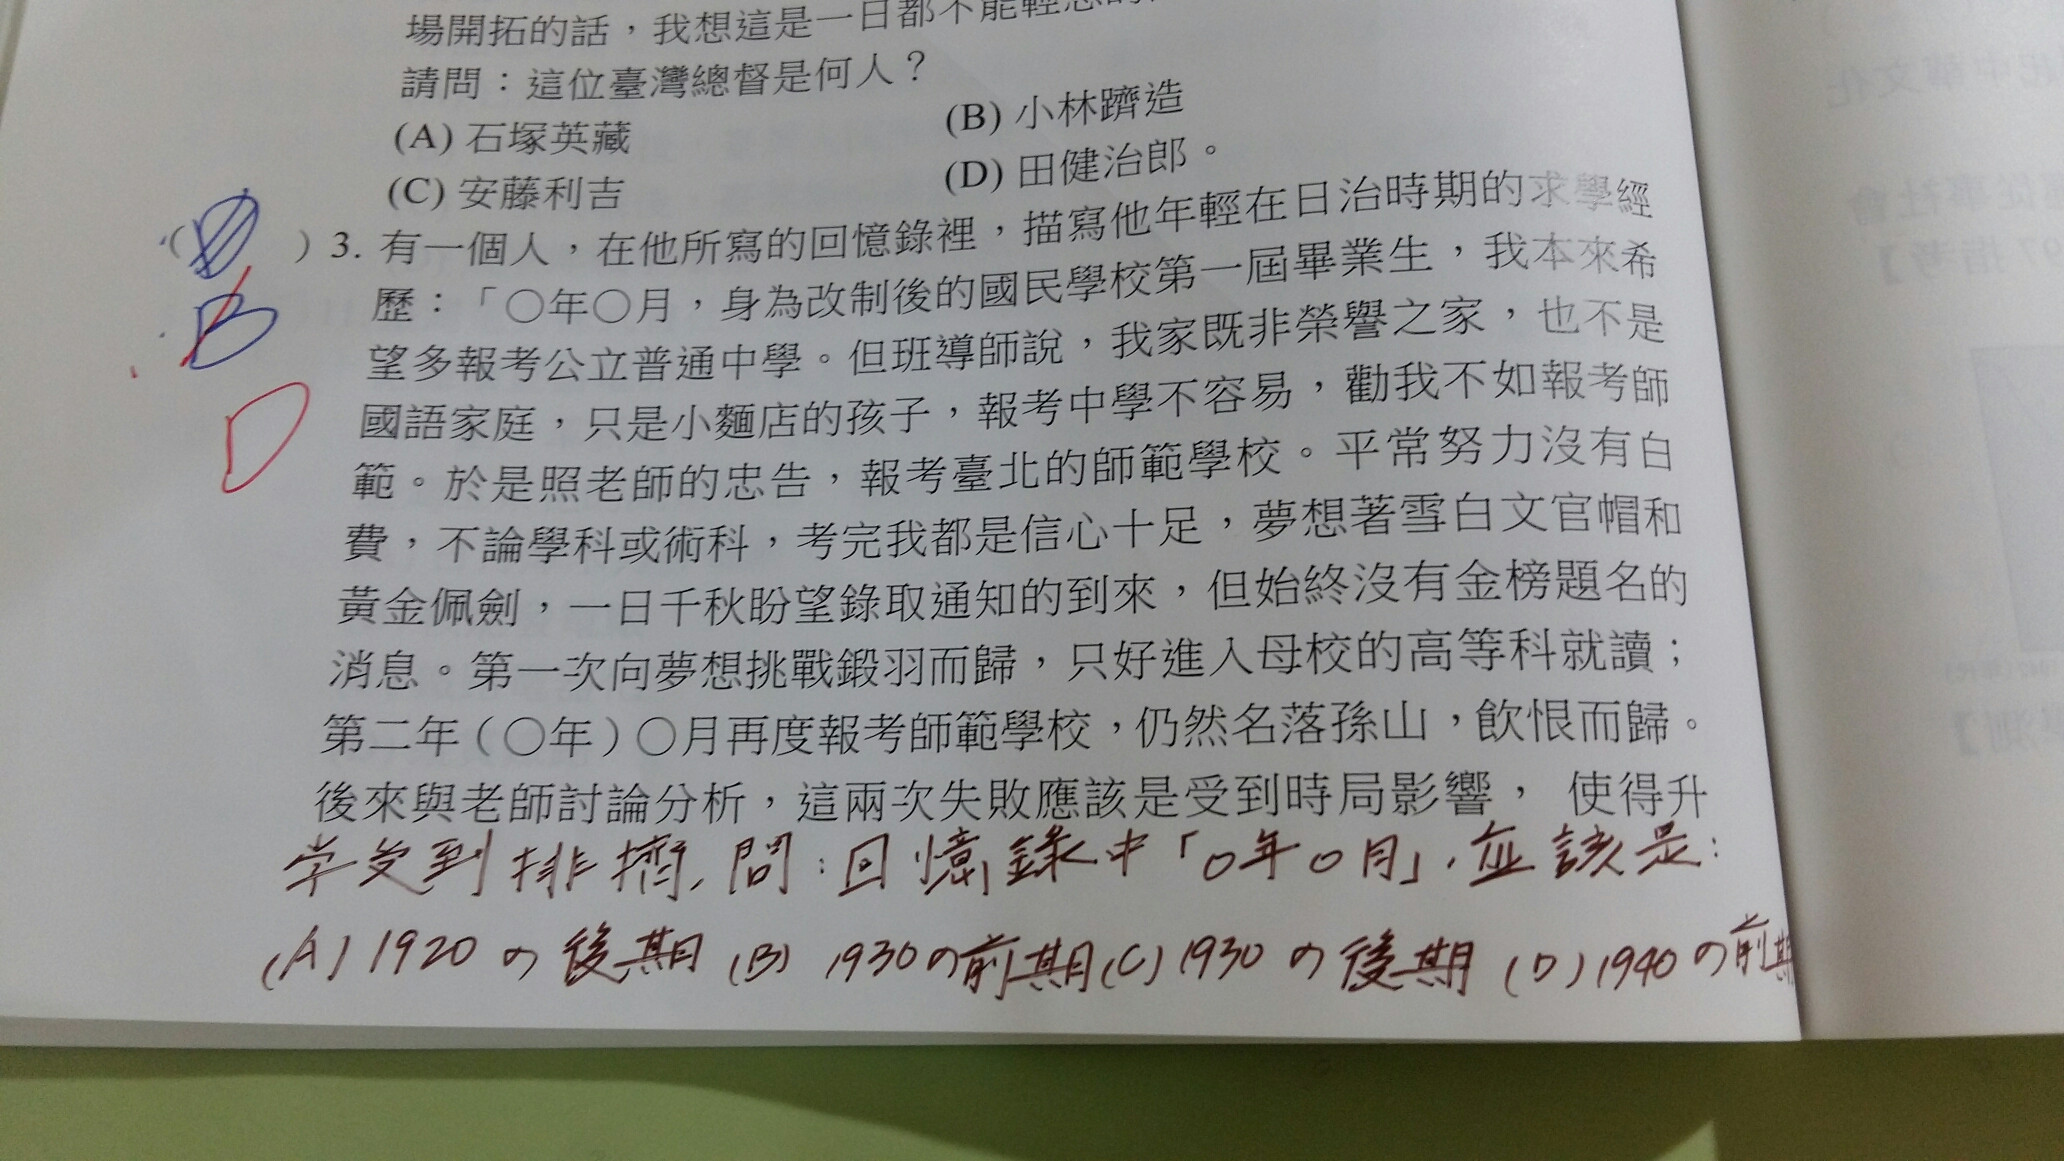 場開拓的話，我想這是一日都不能輕忽的
請問：這位臺灣總督是何人？
(A) 石塚英藏
(B) 小林躋造
(C) 安藤利吉
(D) 田健治郎。
( B ) 3. 有一個人，在他所寫的回憶錄裡，描寫他年輕在日治時期的求學經
D
歷：「○年○月，身為改制後的國民學校第一屆畢業生，我本來希
望多報考公立普通中學。但班導師說，我家既非榮譽之家，也不是
國語家庭，只是小麵店的孩子，報考中學不容易，勸我不如報考師
範。於是照老師的忠告，報考臺北的師範學校。平常努力沒有白
費，不論學科或術科，考完我都是信心十足，夢想著雪白文官帽和
黃金佩劍，一日千秋盼望錄取通知的到來，但始終沒有金榜題名的
消息。第一次向夢想挑戰鍛羽而歸，只好進入母校的高等科就讀；
第二年（○年）○月再度報考師範學校，仍然名落孫山，飲恨而歸。
後來與老師討論分析，這兩次失敗應該是受到時局影響， 使得升
学受到排擠，問：回憶錄中「○年○月」，应該是：
(A) 1920の後期 (B) 1930の前期 (C) 1930の後期 (D) 1940の前期
化中華文化
從事社會
97 指考】
學測】